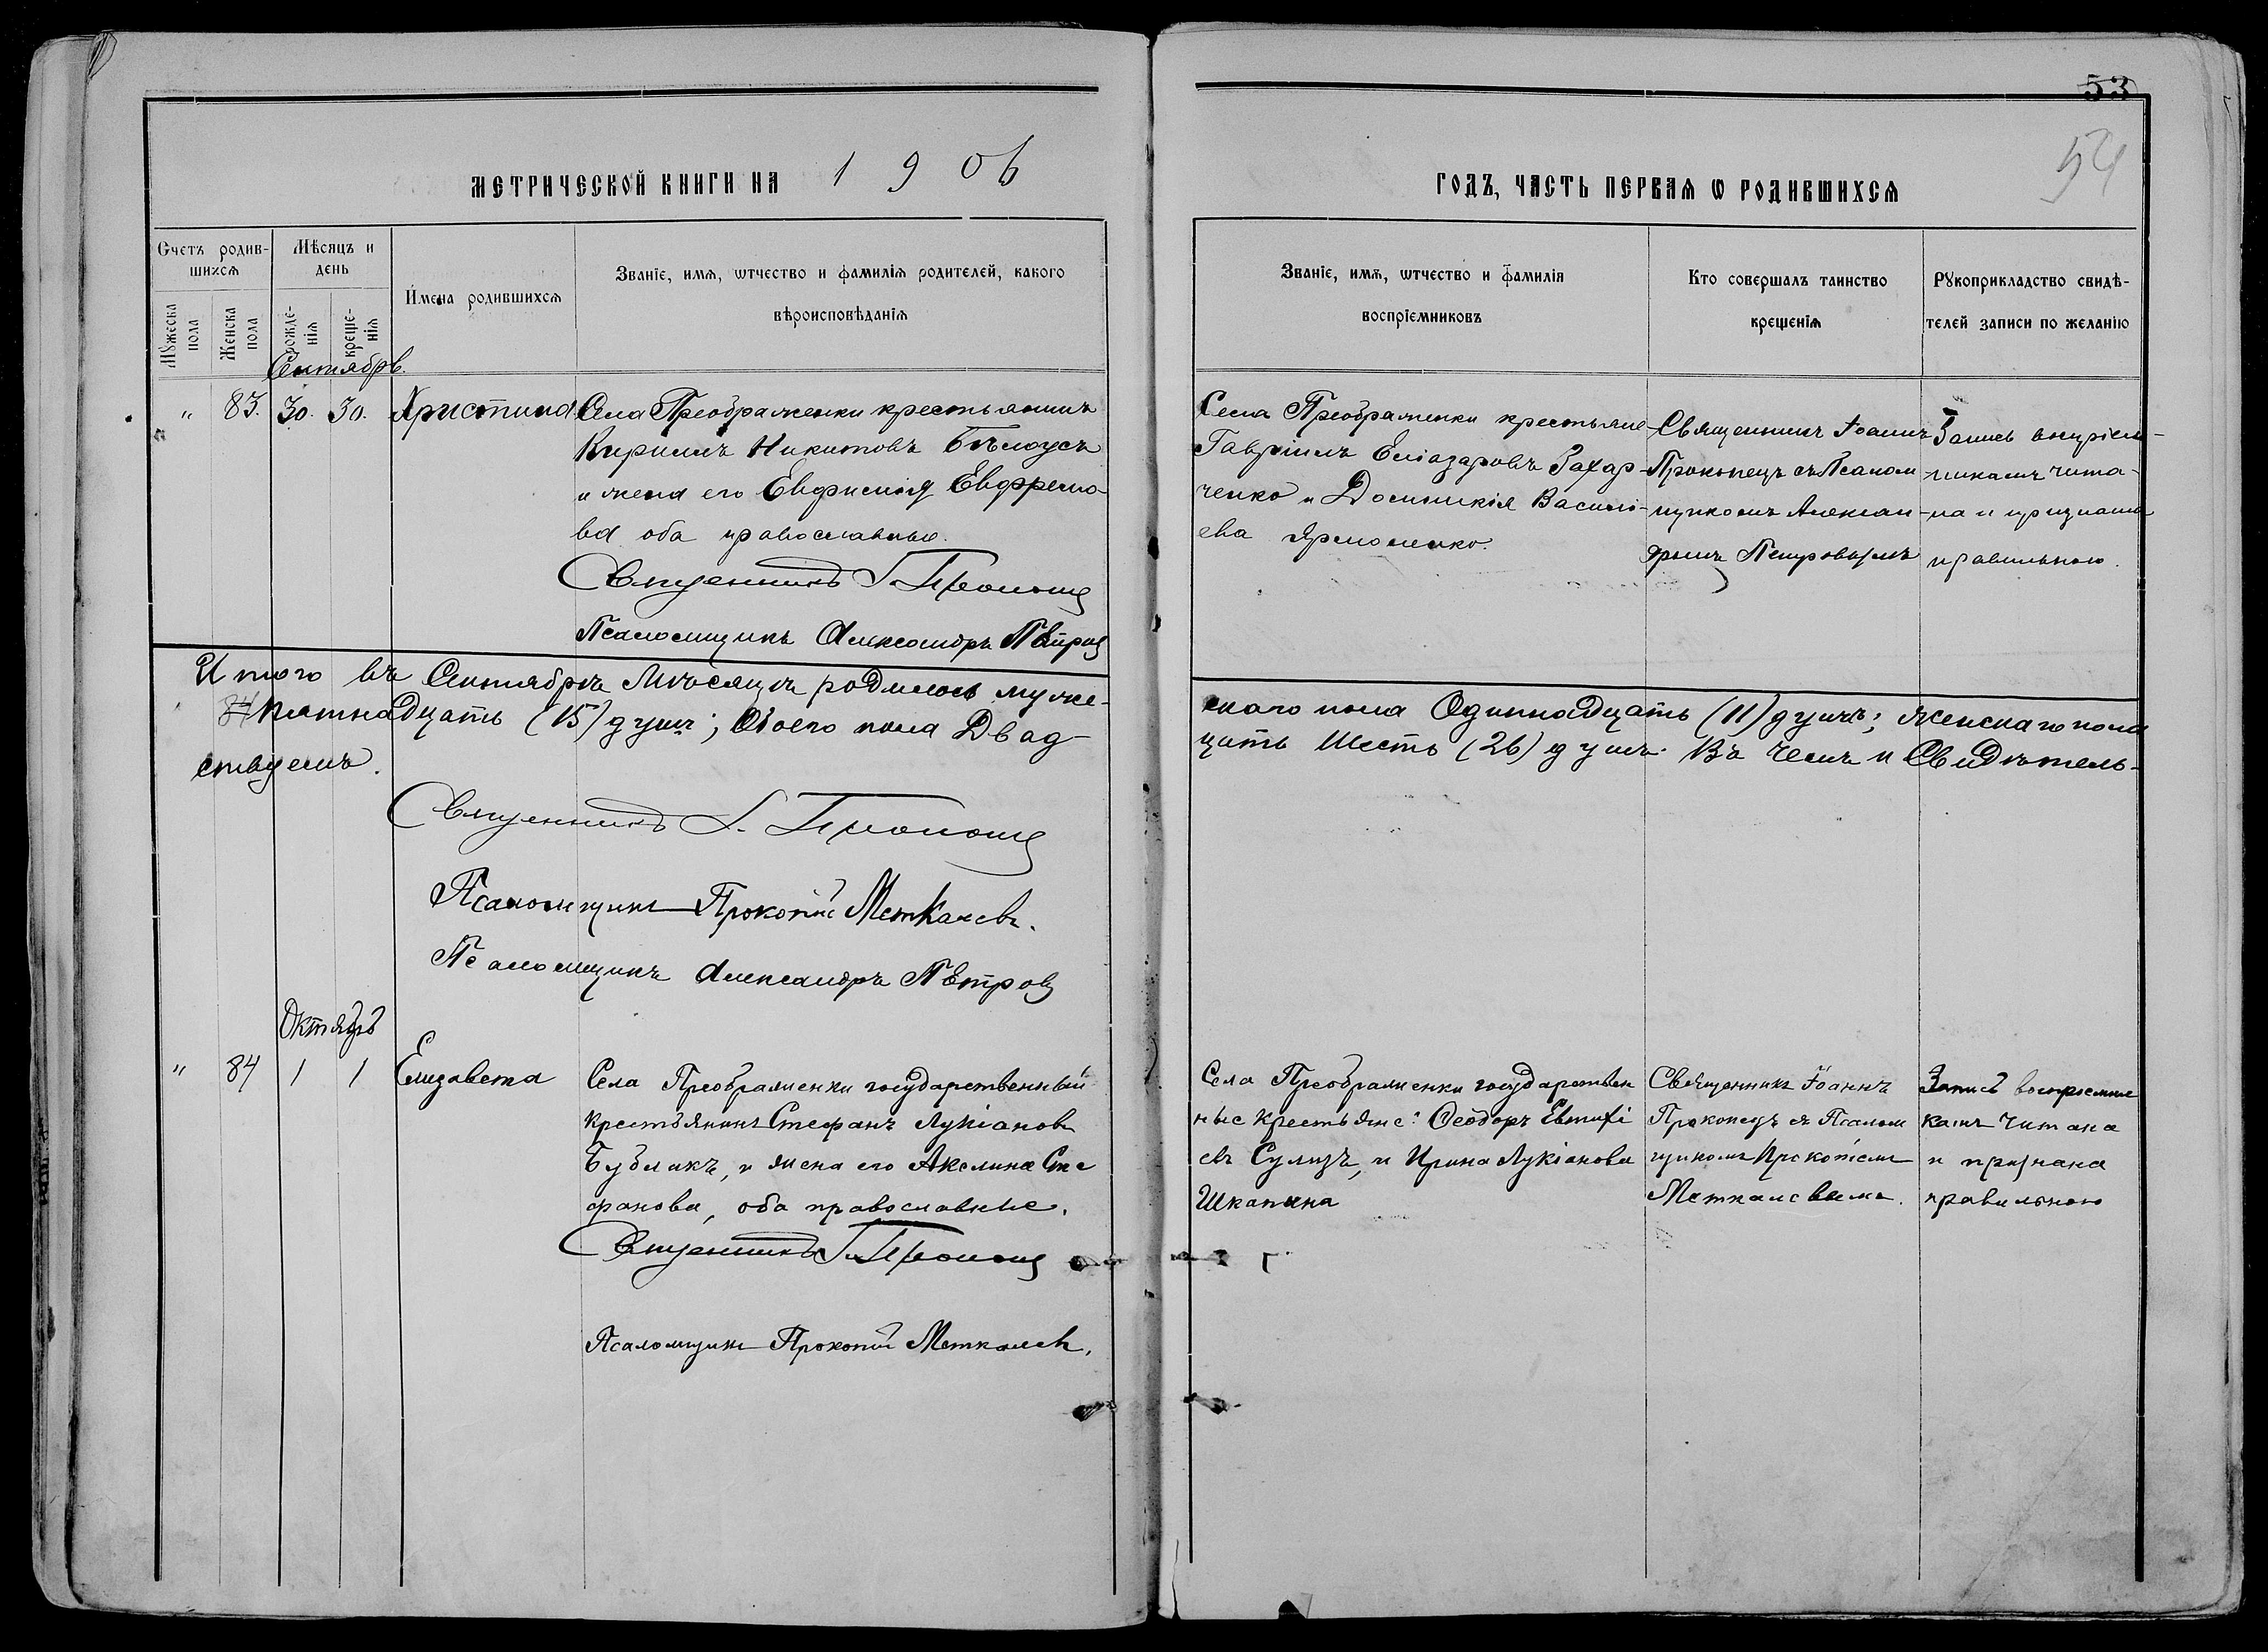 53
54
МЕТРИЧЕСКОЙ КНИГИ НА 1906
ГОДЪ, ЧАСТЬ ПЕРВАѦ Ѡ РОДИВШИХСѦ
Счетъ родив-
шихсѧ
Мѣсяцъ и
день
Мꙋжеска
пола
Женска
пола
рожде-
нія
креще-
нія
Имена родившихсѧ
Званіе, имѧ, ѡтчество и фамиліѧ родителей, какого
вѣроисповѣданіѧ
Званіе, имѧ, ѡтчество и фамиліѧ
воспріемниковъ
Кто совершалъ таинство
крещеніѧ
Рꙋкоприкладство свидѣ-
телей записи по желанію
Сентябрь.
" 83. 30. 30. Христина
Села Преображенки крестьянинъ
Кириллъ Никитовъ Бѣлоусъ
и жена его Евфимія Евфремо-
ва оба православные.
Священникъ І. Прокопец
Псаломщикъ Александръ Петров
Села Преображенки крестьяне
Гавріилъ Еліазаровъ Захар-
ченко и Домникія Василі-
ева Ярмоленко.
Священникъ Іоаннъ
Прокопецъ съ Псалом
щикомъ Алексан-
дромъ Петровымъ
Запись воспріем-
никамъ чита-
на и признана
правильною.
Итого въ Сентябрѣ Мѣсяцѣ родилось муже-
скаго пола Одиннадцать (11) душъ; женскаго пола
84 пятнадцать (15) душъ; Обоего пола Двад-
цать Шесть (26) душъ. Въ чемъ и Свидѣтель-
ствуемъ.
Священникъ І. Прокопец
Псаломщикъ Прокопій Меткалевъ.
Псаломщикъ Александръ Петров
Октябрь
" 84 1 1 Елизавета
Села Преображенки государственный
крестьянинъ Стефанъ Лукіановъ
Бубликъ, и жена его Акелина Сте
фанова, оба православные.
Священникъ І. Прокопец
Псаломщикъ Прокопій Меткалевъ.
Села Преображенки государствен
ные крестьяне: Ѳеодоръ Евтихі
евъ Сулизъ, и Ирина Лукіанова
Шкапина
Священникъ Іоаннъ
Прокопецъ съ Псалом
щикомъ Прокопіемъ
Меткалевымъ.
Запись воспріемни
камъ читана
и признана
правильною